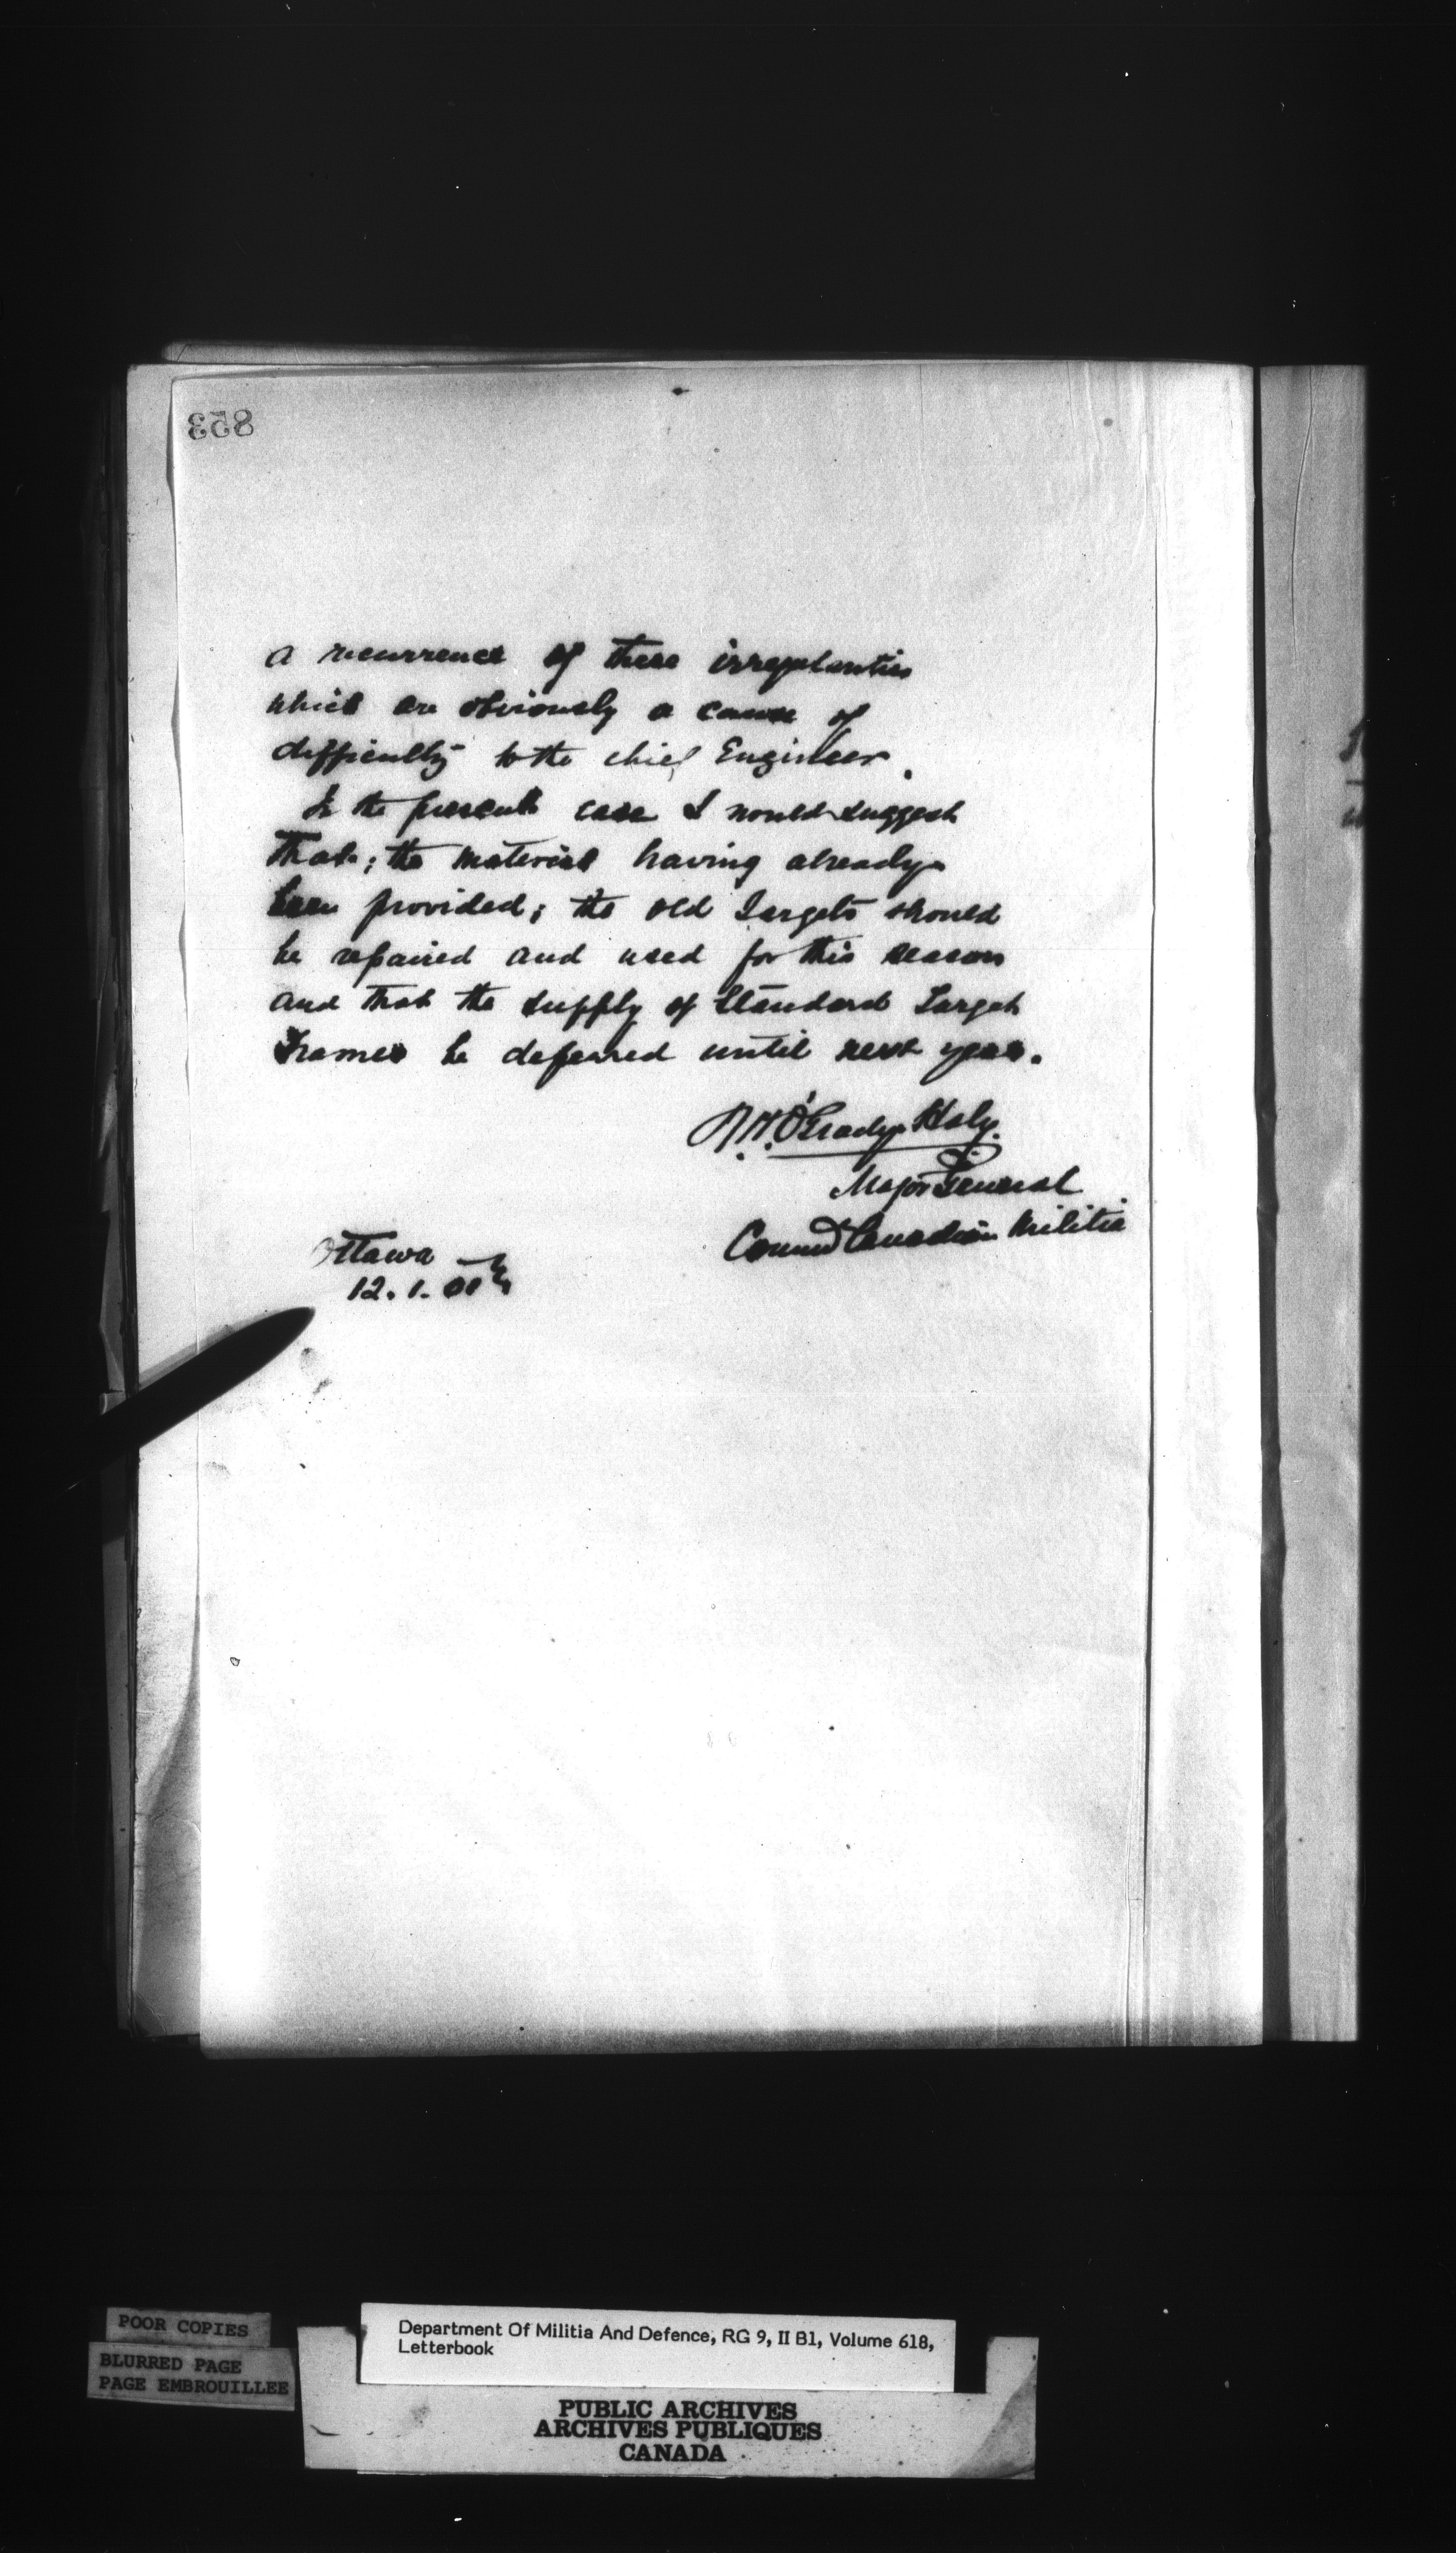 853
a recurrence of these irregularities
which are obviously a cause of
difficulty to the chief Engineer.
In the present case I would suggest
that; the material having already
been provided; the old Targets should
be repaired and used for this season
and that the supply of Standard Target
Frames be deferred until next year.
R.H. O'Grady Haly.
Major General
Commd Canadian Militia
Ottawa
12.1.01
POOR COPIES
BLURRED PAGE
PAGE EMBROUILLEE
Department Of Militia And Defence, RG 9, II B1, Volume 618,
Letterbook
PUBLIC ARCHIVES
ARCHIVES PUBLIQUES
CANADA